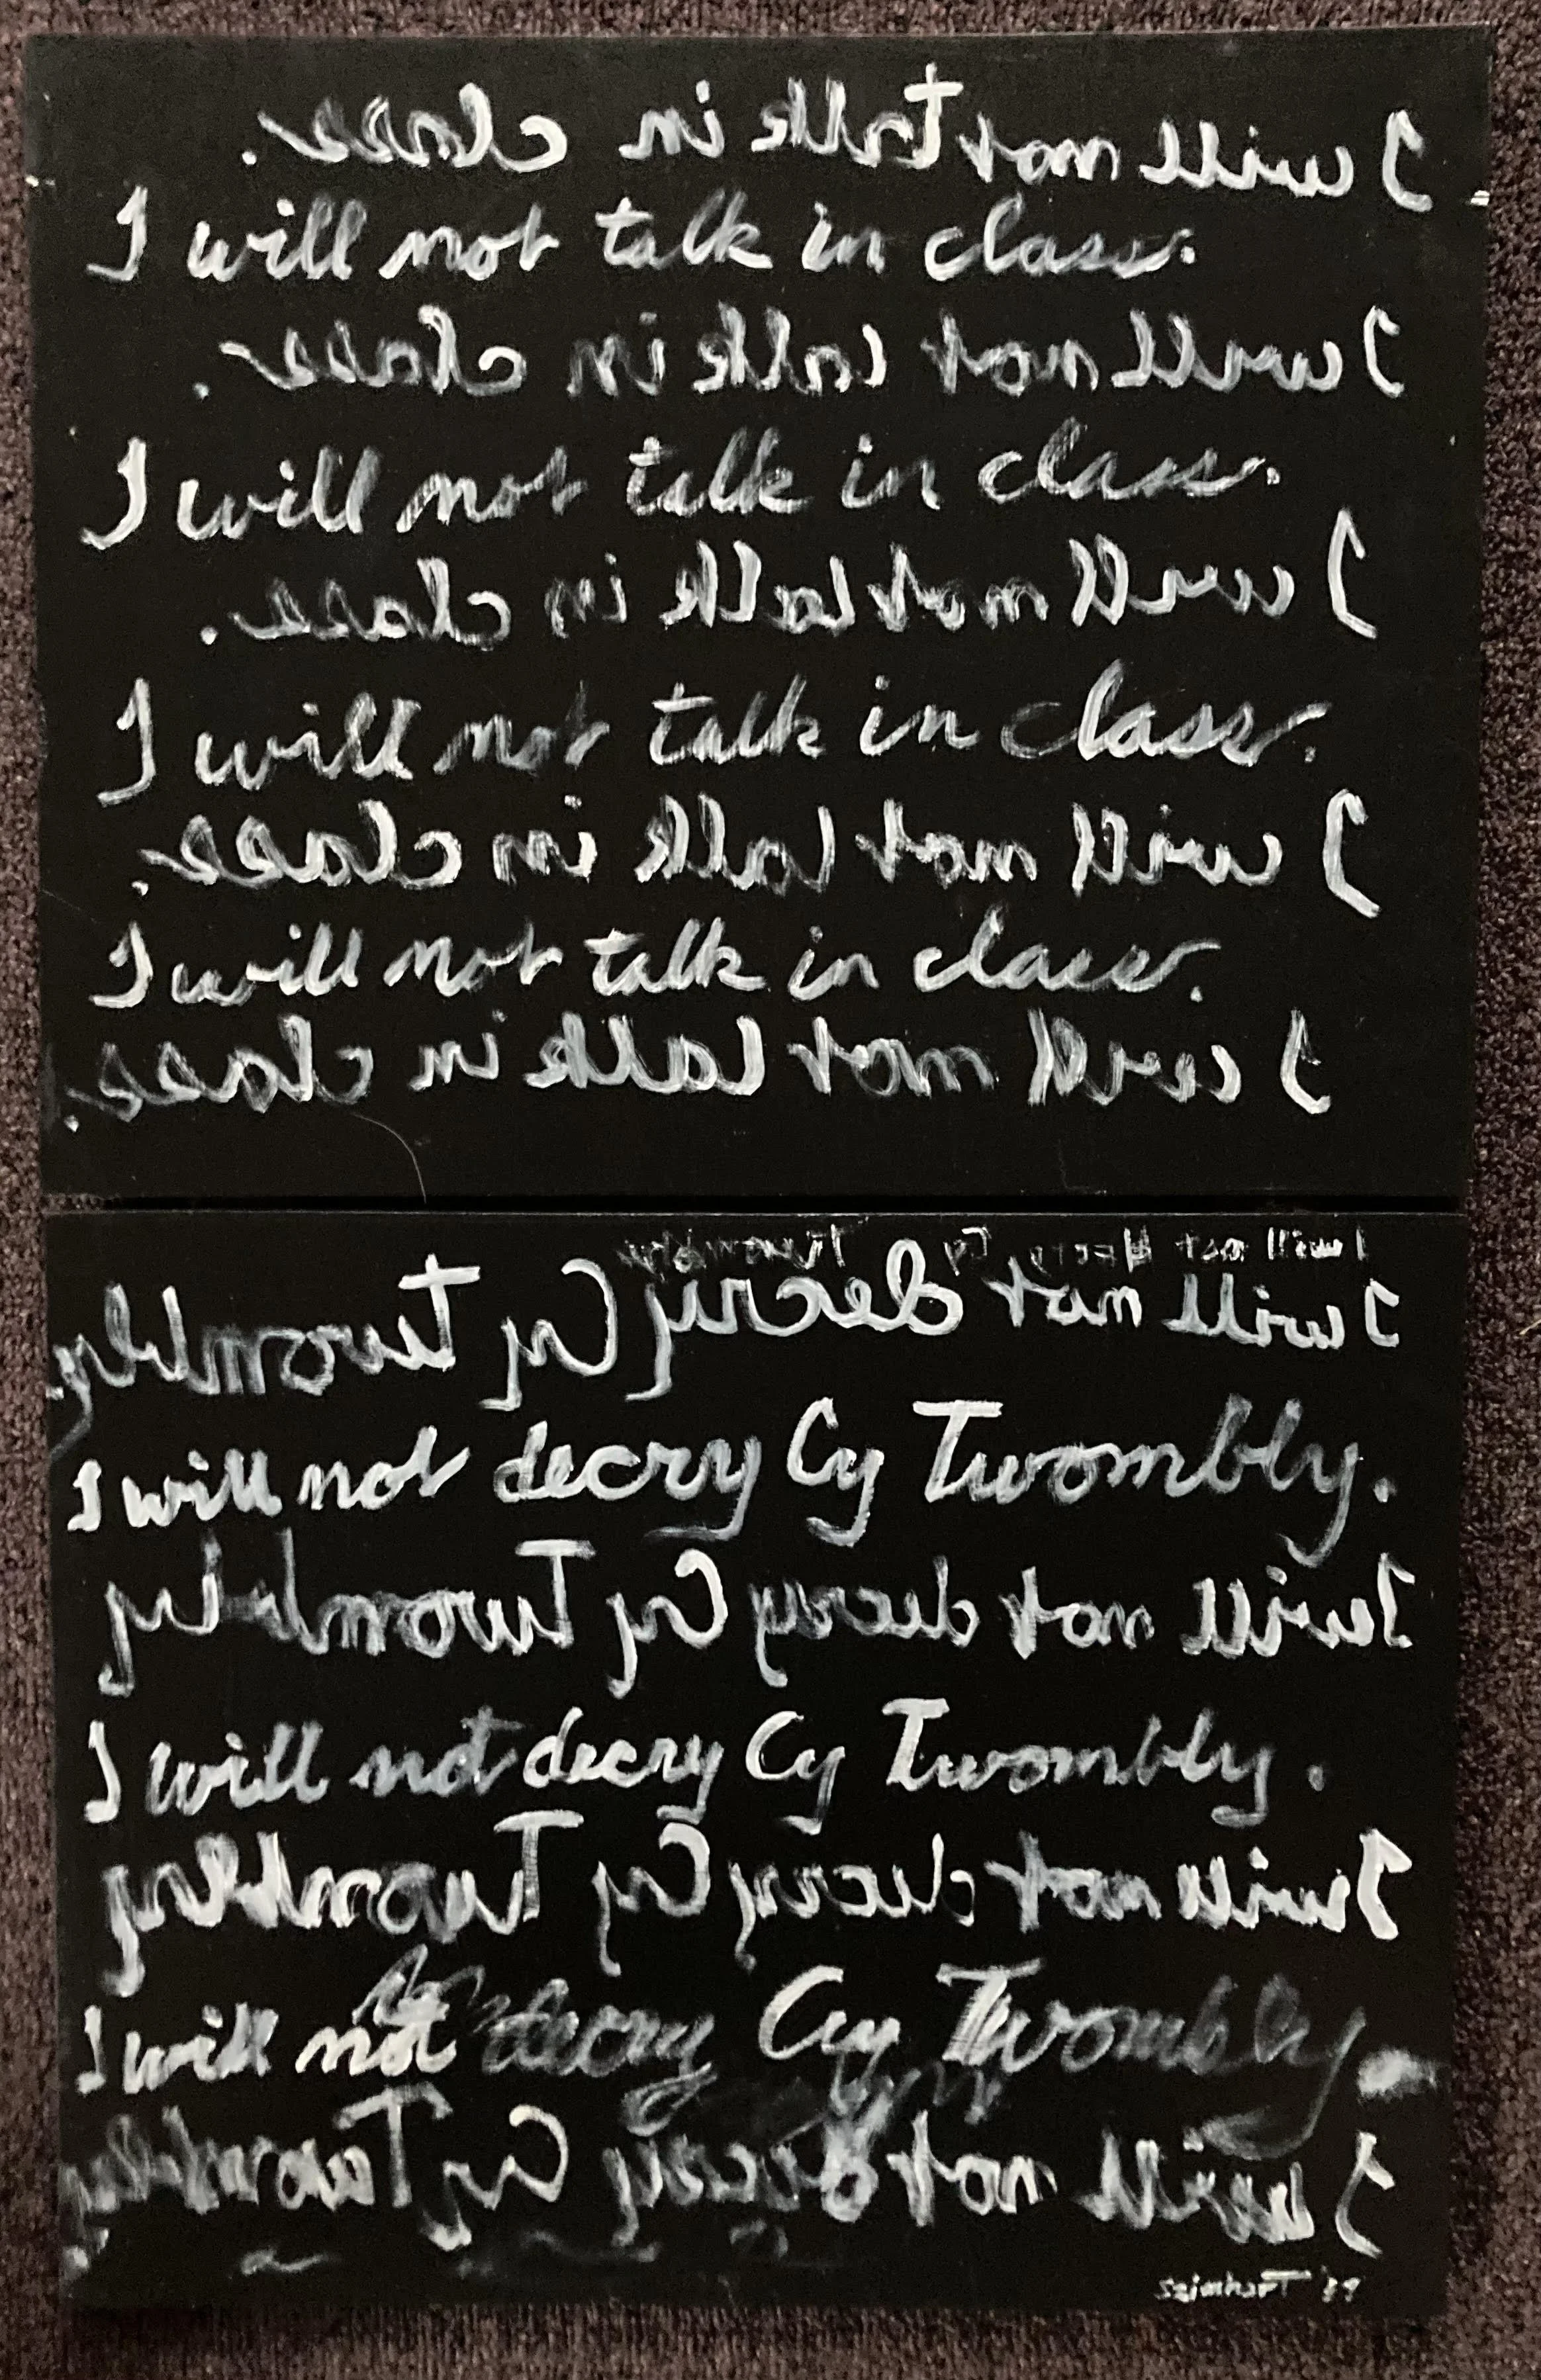 I will not talk in class.
I will not talk in class.
I will not talk in class.
I will not talk in class.
I will not talk in class.
I will not talk in class.
I will not talk in class.
I will not talk in class.
I will not talk in class.
I will not decry Cy Twombly
I will not decry Cy Twombly.
I will not decry Cy Twombly.
I will not decry Cy Twombly
I will not decry Cy Twombly.
I will not decry Cy Twombly
I will not decry Cy Twombly.
I will not decry Cy Twombly.
szimhart '89